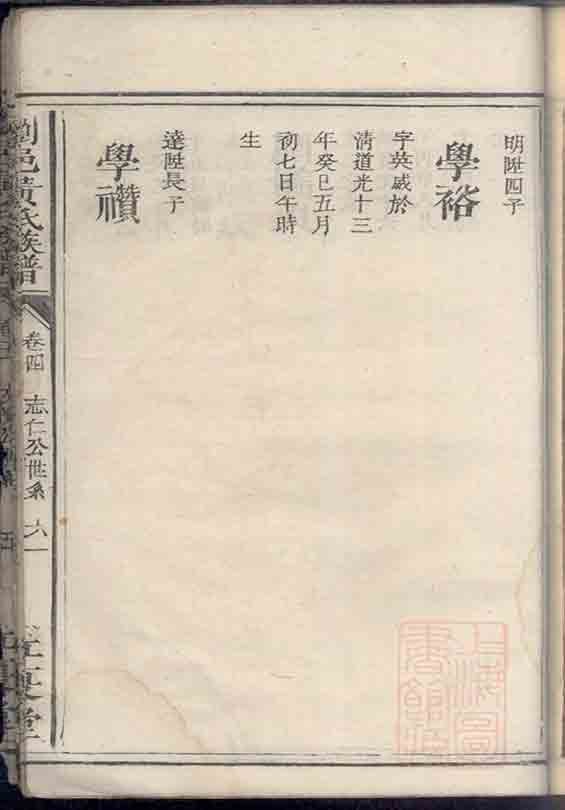 明陞四子
學裕
字英威於
清道光十三
年癸巳五月
初七日午時
生
達陞長子
學禶
劉邑黃氏族譜
卷四
志仁公世系
六一
上海圖
書館藏